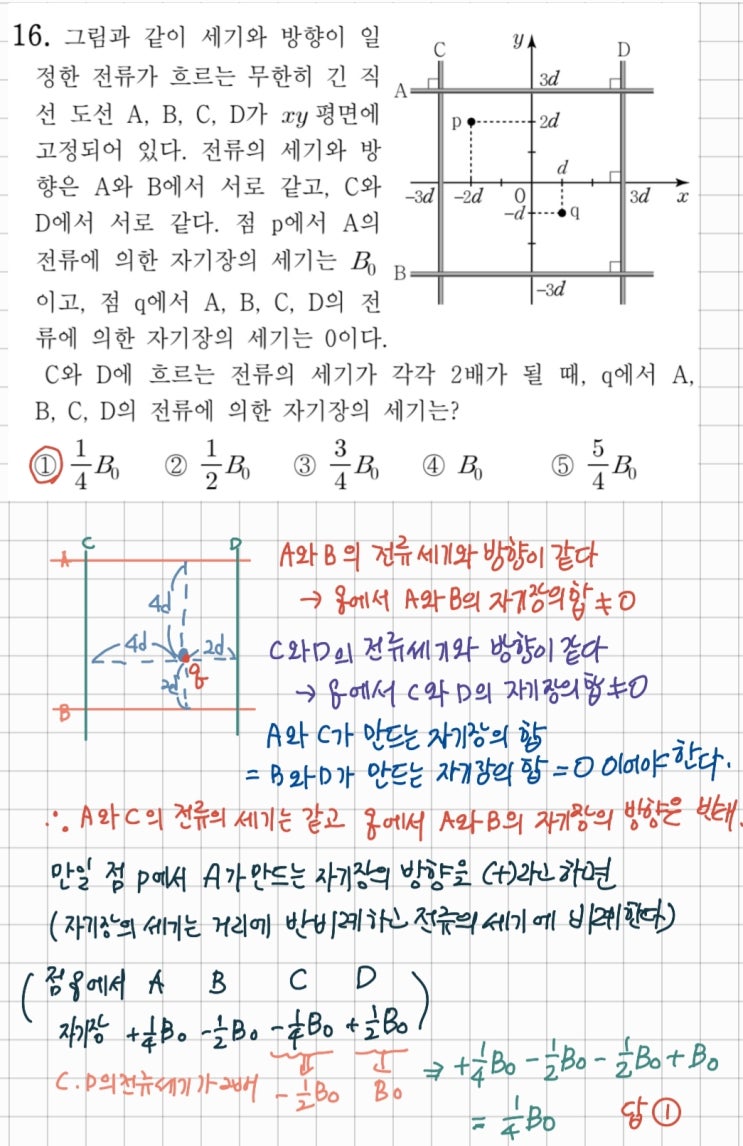 16. 그림과 같이 세기와 방향이 일
정한 전류가 흐르는 무한히 긴 직
선 도선 A, B, C, D가 xy 평면에
고정되어 있다. 전류의 세기와 방
향은 A와 B에서 서로 같고, C와
D에서 서로 같다. 점 p에서 A의
전류에 의한 자기장의 세기는 B₀
이고, 점 q에서 A, B, C, D의 전
류에 의한 자기장의 세기는 0이다.
C y D
A 3d
p 2d
d
-3d -2d 0 3d x
-d q
B -3d
C와 D에 흐르는 전류의 세기가 각각 2배가 될 때, q에서 A,
B, C, D의 전류에 의한 자기장의 세기는?
① 1/4 B₀ ② 1/2 B₀ ③ 3/4 B₀ ④ B₀ ⑤ 5/4 B₀
C D
A
4d
4d 2d
q
2d
B
A와 B의 전류세기와 방향이 같다
→ q에서 A와B의 자기장의합 ≠ 0
C와D의 전류세기와 방향이 같다
→ q에서 C와 D의 자기장의합 ≠0
A와 C가 만드는 자기장의 합
= B와D가 만드는 자기장의 합 = 0 이어야 한다.
∴ A와 C의 전류의 세기는 같고 q에서 A와B의 자기장의 방향은 반대.
만일 점 p에서 A가 만드는 자기장의 방향을 (+)라고 하면
(자기장의 세기는 거리에 반비례하고 전류의 세기에 비례한다)
점q에서 A B C D
자기장 +1/4B₀ -1/2B₀ -1/4B₀ +1/2B₀
C.D의전류세기가2배 -1/2B₀ B₀
⇒ +1/4B₀ - 1/2B₀ - 1/2B₀ + B₀
= 1/4B₀ 답①